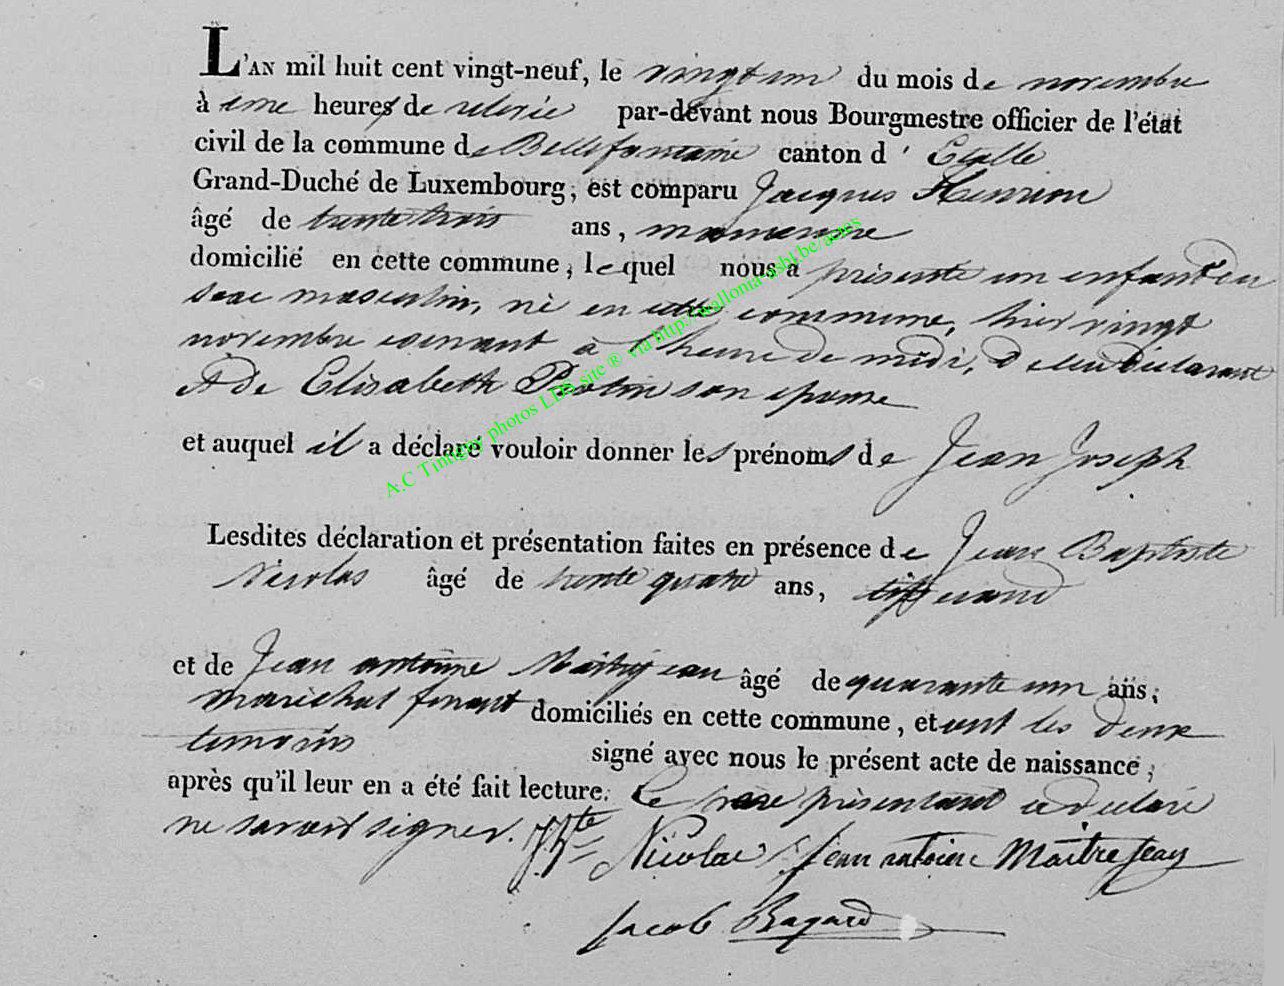 L'AN mil huit cent vingt-neuf, le vingt un du mois de novembre
à une heures de relevée par-devant nous Bourgmestre officier de l'état
civil de la commune de Bellefontaine canton d'Etalle
Grand-Duché de Luxembourg, est comparu Jacques Henrion
âgé de trente trois ans, manoeuvre
domicilié en cette commune, lequel nous a présenté un enfant du
sexe masculin, né en cette commune, hier vingt
novembre courant à l'heure de midi, de lui déclarant
et de Elisabeth son épouse
et auquel il a déclaré vouloir donner les prénoms de Jean Joseph
Lesdites déclaration et présentation faites en présence de Jean Baptiste
Nicolas âgé de trente quatre ans, tisserand
et de Jean antoine Maitrejean âgé de quarante un ans,
maréchal ferant domiciliés en cette commune, et ont les deux
temoins signé avec nous le présent acte de naissance,
après qu'il leur en a été fait lecture. Le père présentant a déclaré
ne savoir signer. J Bte Nicolas Jean antoine Maitrejean
Jacob Bagard
A.C Tintigny photos LDS site ® via http://wallonia-asbl.be/actes